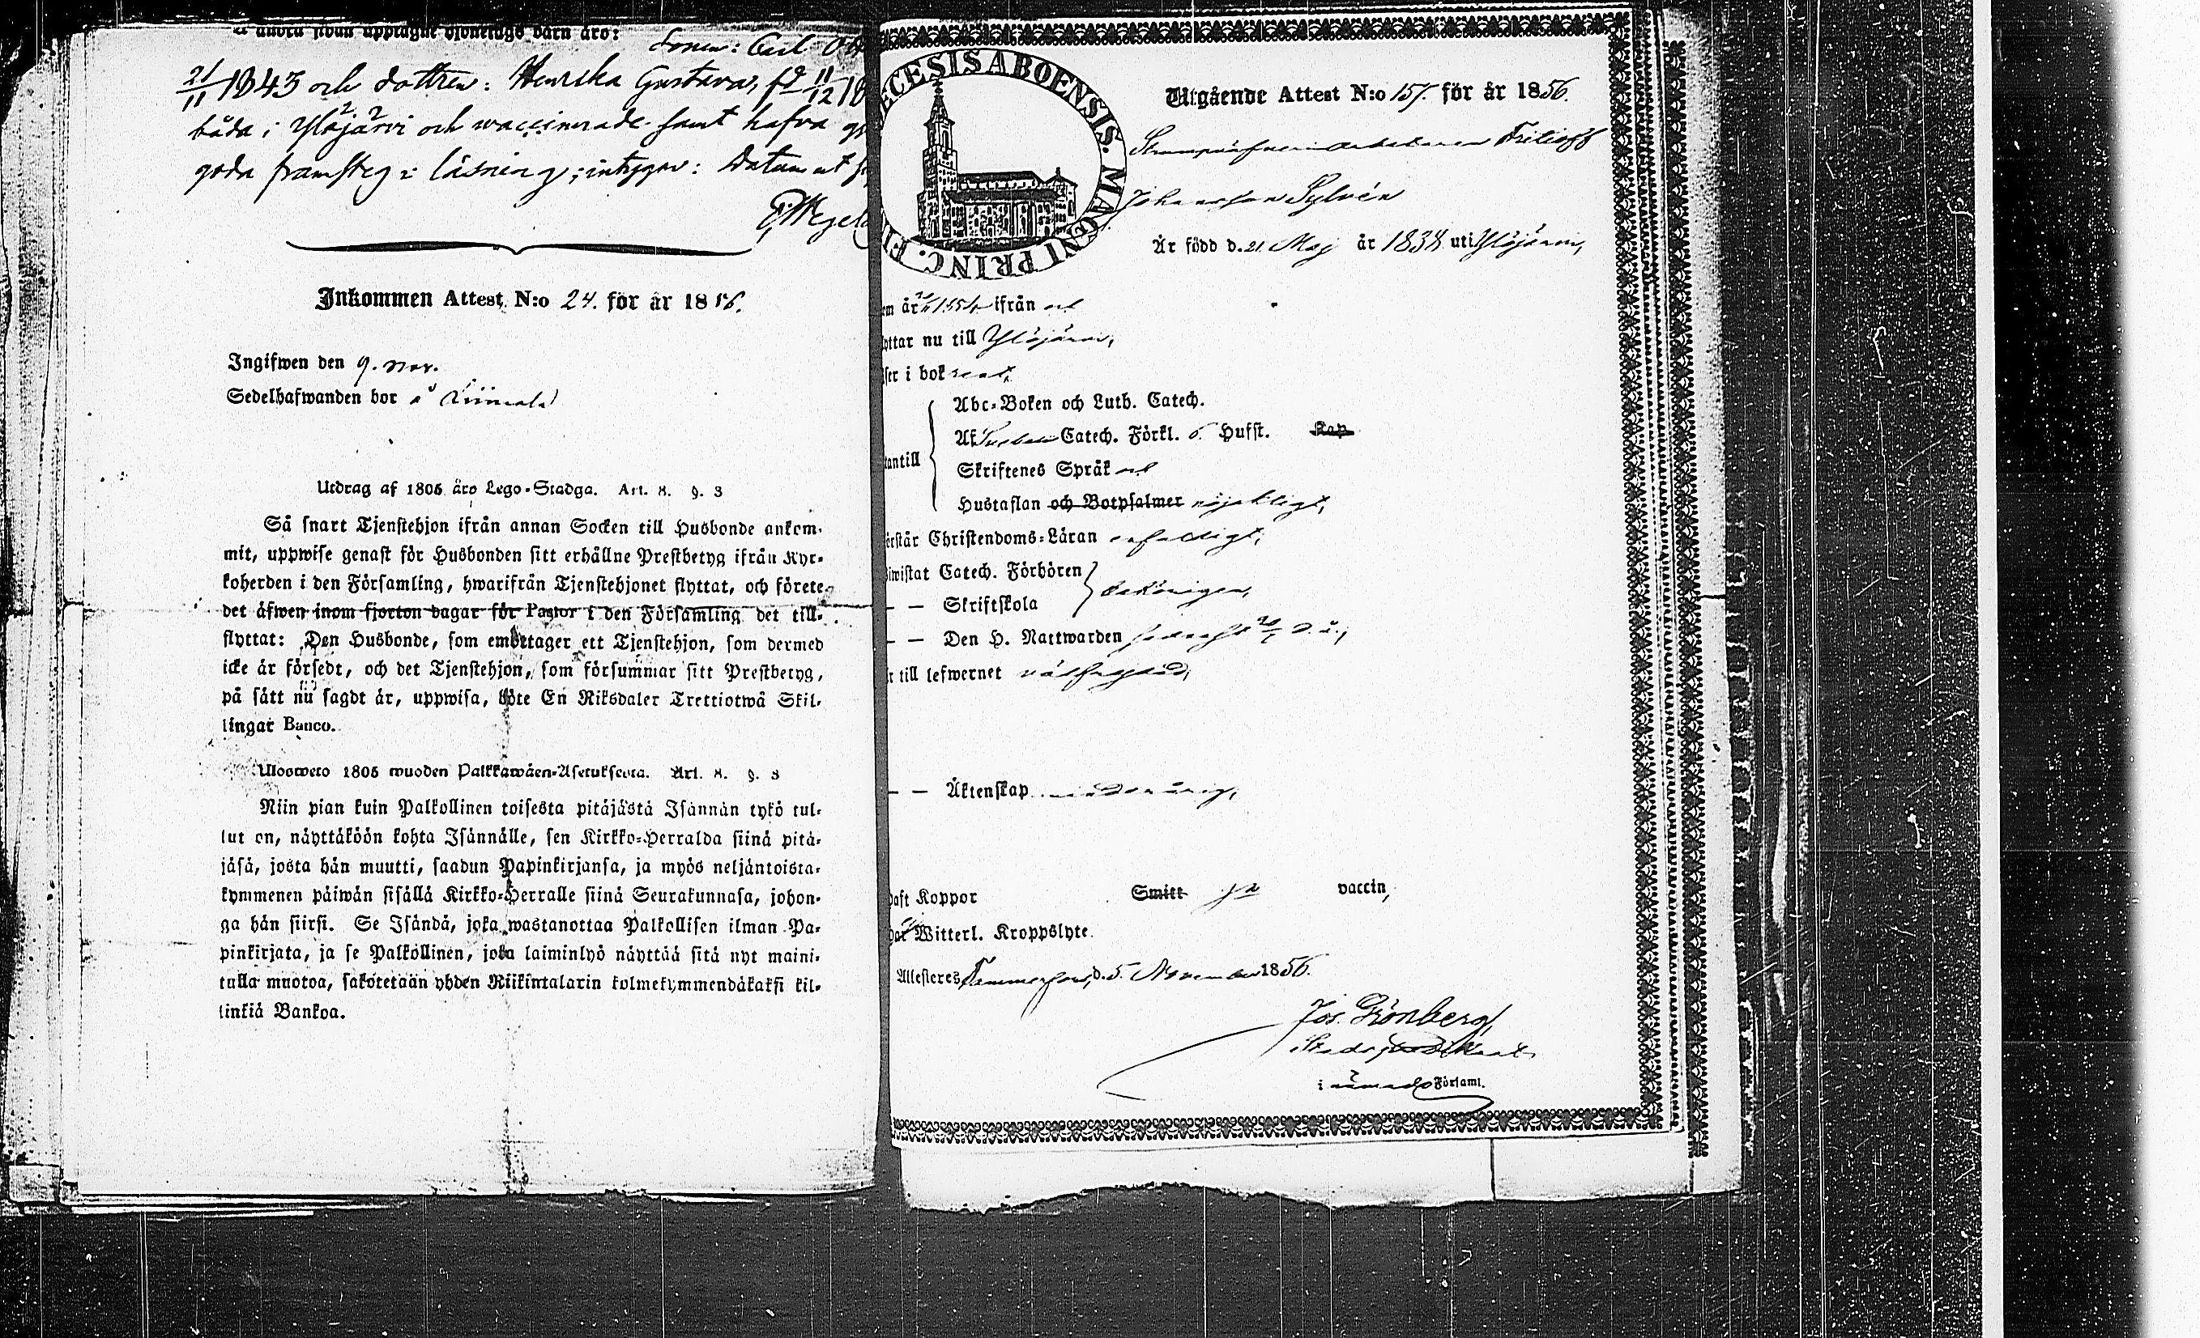 å andra sidan upptagne hjonelags barn äro:
Sonen: Carl
21/11 1843 och dottren: Henrika Gustava, fd 11/12 18
båda i Ylöjärvi och vaccinerade samt hafva
goda framsteg i läsning; intygar: Datum ut
Inkommen Attest N:o 24. för år 1856.
Ingifwen den 9. Nov.
Sedelhafwanden bor å
Utdrag af 1805 års Lego-Stadga. Art. 8. §. 3
Så snart Tjenstehjon ifrån annan Socken till Husbonde ankom-
mit, uppwise genast för Husbonden sitt erhållne Prestbetyg ifrån Kyr-
koherden i den Församling, hwarifrån Tjenstehjonet flyttat, och förete
det äfwen inom fjorton dagar för Pastor i den Församling det till-
flyttat: Den Husbonde, som emottager ett Tjenstehjon, som dermed
icke är försedt, och det Tjenstehjon, som försummar sitt Prestbetyg,
på sätt nu sagdt är, uppwisa, böte En Riksdaler Trettiotwå Skil-
lingar Banco.
Ulosweto 1805 wuoden Palkkawäen-Asetuksesta. Art. 8. §. 3
Niin pian kuin Palkollinen toisesta pitäjästä Isännän tykö tul-
lut on, näyttäköön kohta Isännälle, sen Kirkko-Herralda siinä pitä-
jäsä, josta hän muutti, saadun Papinkirjansa, ja myös neljäntoista-
kymmenen päiwän sisällä Kirkko-Herralle siinä Seurakunnasa, johon-
ga hän siirsi. Se Isändä, joka wastanottaa Palkollisen ilman Pa-
pinkirjata, ja se Palkollinen, joka laiminlyö näyttää sitä nyt maini-
tulla muotoa, sakotetaan yhden Riikintalarin kolmekymmendäkaksi kil-
linkiä Bankoa.
ECESIS ABOENSIS. MAGNI PRINC. FI
Utgående Attest N:o 157. för år 1856.
Fritioff
Johansson Sylvén
Är född d. 21 Maj år 1838 uti Ylöjärvi,
em år 1854 ifrån
yttar nu till Ylöjärvi,
ser i bok
Abc-Boken och Luth. Catech.
Af Catech. Förkl. o. Hufst. Kap
tantill
Skriftenes Språk
Hustaflan och Botpsalmer nöjaktigt,
örstår Christendoms-Läran enfaldigt,
biwistat Catech. Förhören
— — Skriftskola
— — Den H. Nattwarden
r till lefwernet välfrejdad,
— — Äktenskap minderårig,
haft Koppor Smitt ja vaccin,
Witterl. Kroppslyte
Attesteres Tammerfors, d. 5. November 1856.
Jos. Grönberg,
i nämnde Församl.